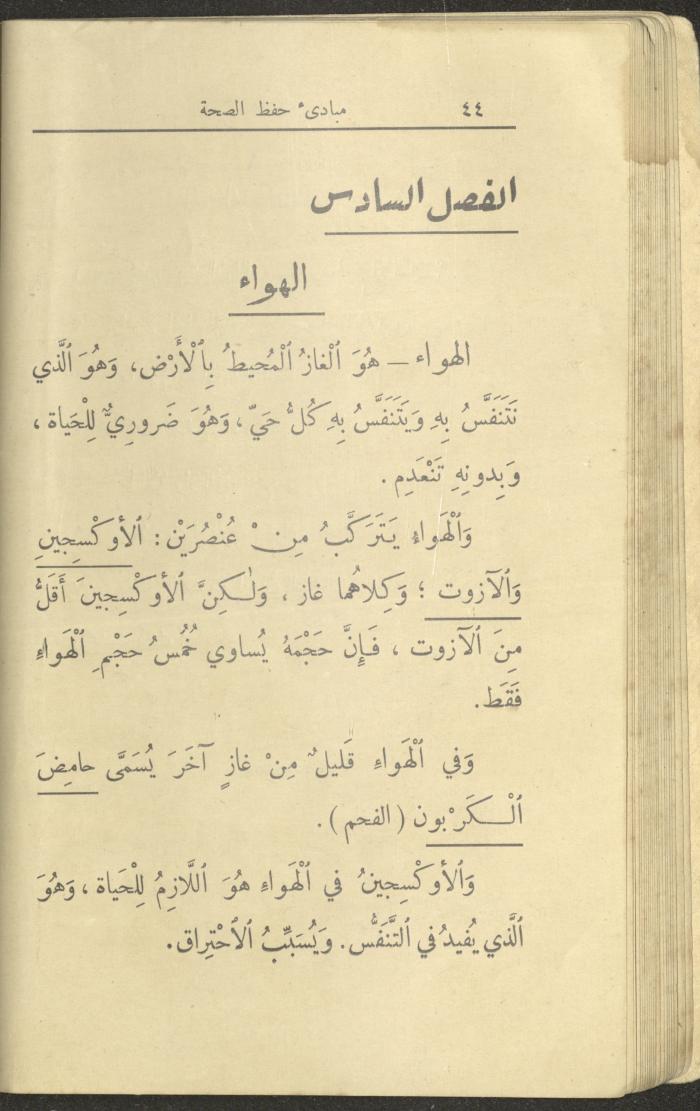 ٤٤ مبادئ حفظ الصحة
الفصل السادس
الهواء
الهواء — هُوَ ٱلْغازُ ٱلْمُحيطُ بِٱلْأَرْض، وَهُوَ ٱلَّذي
نَتَنَفَّسُ بِهِ وَيَتَنَفَّسُ بِهِ كُلُّ حَيّ، وَهُوَ ضَرورِيٌّ لِلْحَياة،
وَبِدونِهِ تَنْعَدِم.
وَٱلْهَواءُ يَتَرَكَّبُ مِنْ عُنْصُرَيْن: ٱلأوكْسِجينِ
وَٱلآزوت؛ وَكِلاهُما غاز، وَلٰكِنَّ ٱلأوكْسِجينَ أَقَلُّ
مِنَ ٱلآزوت، فَإِنَّ حَجْمَهُ يُساوي خُمْسُ حَجْمِ ٱلْهَواءِ
فَقَط.
وَفي ٱلْهَواءِ قَليلٌ مِنْ غازٍ آخَرَ يُسَمَّى حامِضَ
ٱلْكَرْبون (الفحم).
وَٱلأوكْسِجينُ في ٱلْهَواءِ هُوَ ٱللَّازِمُ لِلْحَياة، وَهُوَ
ٱلَّذي يُفيدُ في ٱلتَّنَفُّس. وَيُسَبِّبُ ٱلاحْتِراق.